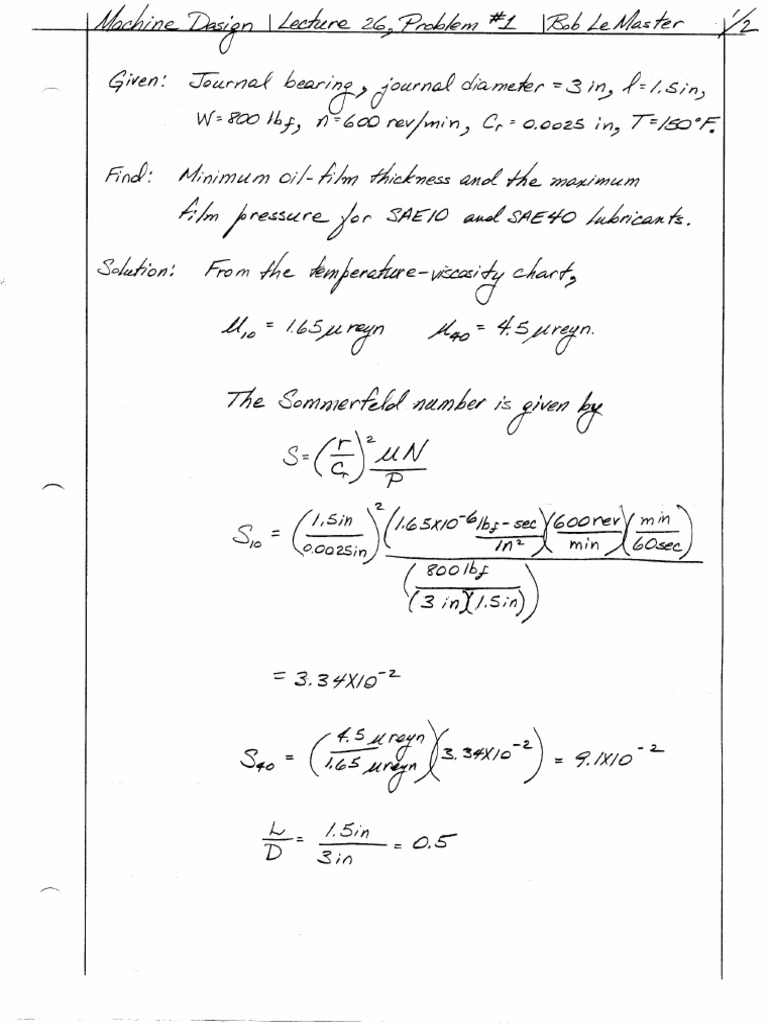 Machine Design | Lecture 26, Problem #1 | Bob LeMaster 1/2
Given: Journal bearing, journal diameter = 3 in, l = 1.5 in,
W = 800 lbf, n = 600 rev/min, Cr = 0.0025 in, T = 150°F.
Find: Minimum oil-film thickness and the maximum
film pressure for SAE10 and SAE40 lubricants.
Solution: From the temperature-viscosity chart,
μ₁₀ = 1.65 μreyn μ₄₀ = 4.5 μreyn.
The Sommerfeld number is given by
S = (r/Cr)² μN/P
S₁₀ = (1.5in/0.0025in)² (1.65x10⁻⁶ lbf-sec/in²)(600rev/min)(min/60sec)/(800 lbf/(3 in)(1.5in))
= 3.34X10⁻²
S₄₀ = (4.5 μreyn/1.65 μreyn)(3.34X10⁻²) = 9.1X10⁻²
L/D = 1.5in/3in = 0.5